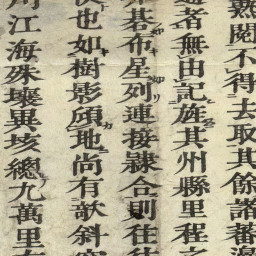 熟閱不得去取其餘諸蕃
邈者無由記旌其州縣里程之
碁布星列連接隸合則往往
也如樹影頎地尚有欹斜
江海殊壤異垓總九萬里